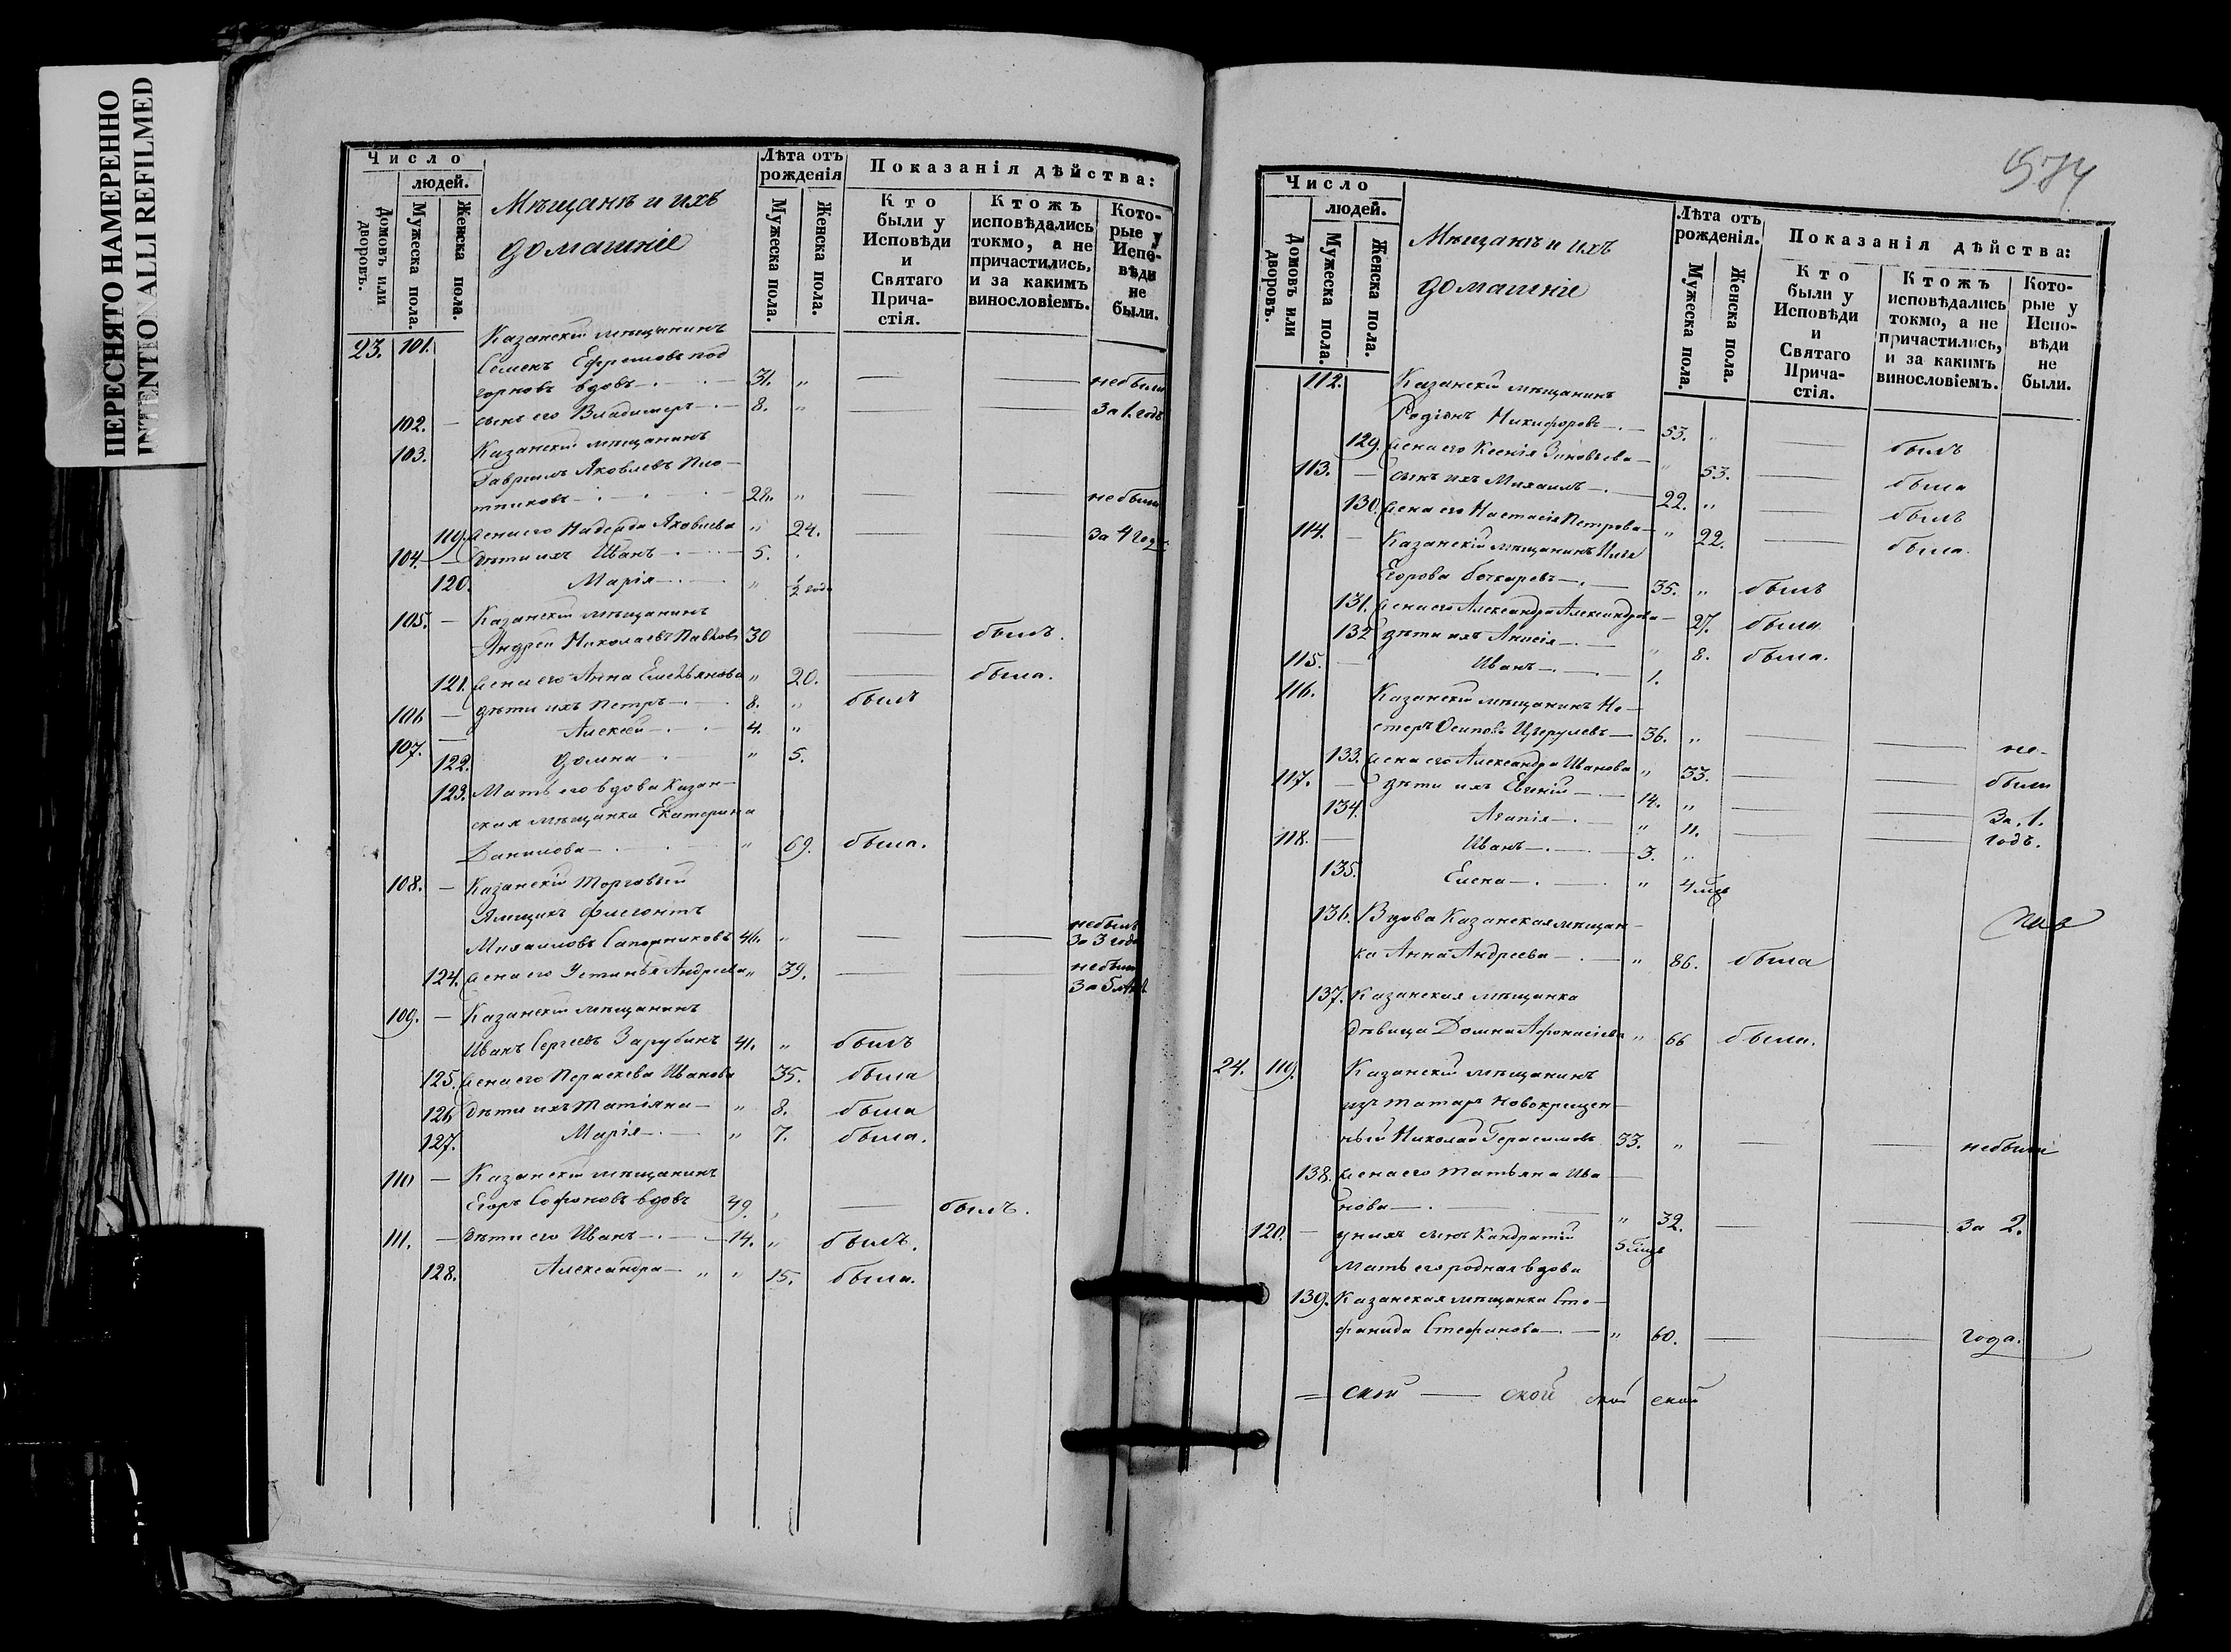 ПЕРЕСНЯТО НАМЕРЕННО
INTENTIONALLI REFILMED
Число
людей.
Домовъ или дворовъ.
Мужеска пола.
Женска пола.
Мѣщанъ и ихъ
домашніе
Лѣта отъ рожденія
Мужеска пола.
Женска пола.
Показанія дѣйства:
Кто были у Исповѣди и Святаго Причастія.
Ктожъ исповѣдались токмо, а не причастились, и за какимъ винословіемъ.
Которые у Исповѣди не были.
23. 101. Казанскій мѣщанинъ
Семенъ Ефремовъ Под
горновъ вдовъ 31. " — — небыли
102. — сынъ его Владимеръ 8. " за 1. годъ
103. Казанскій мѣщанинъ
Гавріилъ Яковлевъ Пло-
тниковъ 28. " — — небыли
119. жена его Надежда Яковлева " 24. — — за 4 года
104. — дѣти ихъ Иванъ 5. "
120. Марія " ½ года
105. — Казанскій мѣщанинъ
Андрей Николаевъ Павловъ 30 — былъ.
121. жена его Анна Емельянова " 20. — была.
106 — дѣти ихъ Петръ 8. " былъ
107. — Алексѣй 4. "
122. Домна " 5.
123. Мать его вдова Казан-
ская мѣщанка Екатерина
Данилова " 69. была.
108. — Казанскій Торговый
Ямщикъ Флегонтъ
Михаиловъ Сапожниковъ 46. " — — небылъ за 3 года
124. жена его Устинья Андреева " 39. — — небыла за 5 лѣтъ
109. — Казанскій мѣщанинъ
Иванъ Сергеевъ Зарубинъ 41. " былъ
125. жена его Параскева Иванова 35. была
126 дѣти ихъ Татіяна " 8. была
127. Марія " 7. была.
110 — Казанскій мѣщанинъ
Егоръ Софоновъ вдовъ 49. " — былъ.
111. — дѣти его Иванъ 14. " былъ.
128. Александра " " 15. была.
574
Число
людей.
Домовъ или дворовъ.
Мужеска пола.
Женска пола.
Мѣщанъ и ихъ
домашніе
Лѣта отъ рожденія.
Мужеска пола.
Женска пола.
Показанія дѣйства:
Кто были у Исповѣди и Святаго Причастія.
Ктожъ исповѣдались токмо, а не причастились, и за какимъ винословіемъ.
Которые у Исповѣди не были.
112. Казанскій мѣщанинъ
Родіонъ Никифоровъ 53. " — былъ
129. жена его Ксенія Зиновьева " 53. — была
113. — сынъ ихъ Михаилъ 22. " — былъ
130. жена его Настасія Петрова " 22. — была.
114. — Казанскій мѣщанинъ Илья
Егоровъ Бочкаревъ 35. " былъ
131. жена его Александра Александрова 27. была
132 дѣти ихъ Анисія " 8. была.
115. — Иванъ 1.
116. Казанскій мѣщанинъ Не-
стеръ Осиповъ 36. " — — не-
133. жена его Александра Иванова " 33. — — были
117. — дѣти ихъ Евгеній 14. " — — за 1.
134. Агапія " 11. — — годъ.
118. — Иванъ 3. "
135. Елена " 4 мцъ
136. Вдова Казанская мѣщан-
ка Анна Андреева " 86. была
137. Казанская мѣщанка
дѣвица Домна Афонасіева " 66 была.
24. 119. Казанскій мѣщанинъ
изъ татаръ новокрещен-
ный Николай Герасимовъ 33. " — — небыли
138. жена его Татьяна Ива-
нова " 32. — — за 2.
120. — у нихъ сынъ Кандратій 5 мцъ
Мать его родная вдова
139. Казанская мѣщанка Сте-
фанида Стефанова " 60. — — года.
= ской — ской ской ской